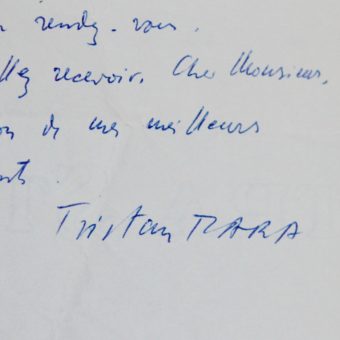 rendez-vous.
llez recevoir, Cher Monsieur,
on de mes meilleurs
nts.
Tristan TZARA